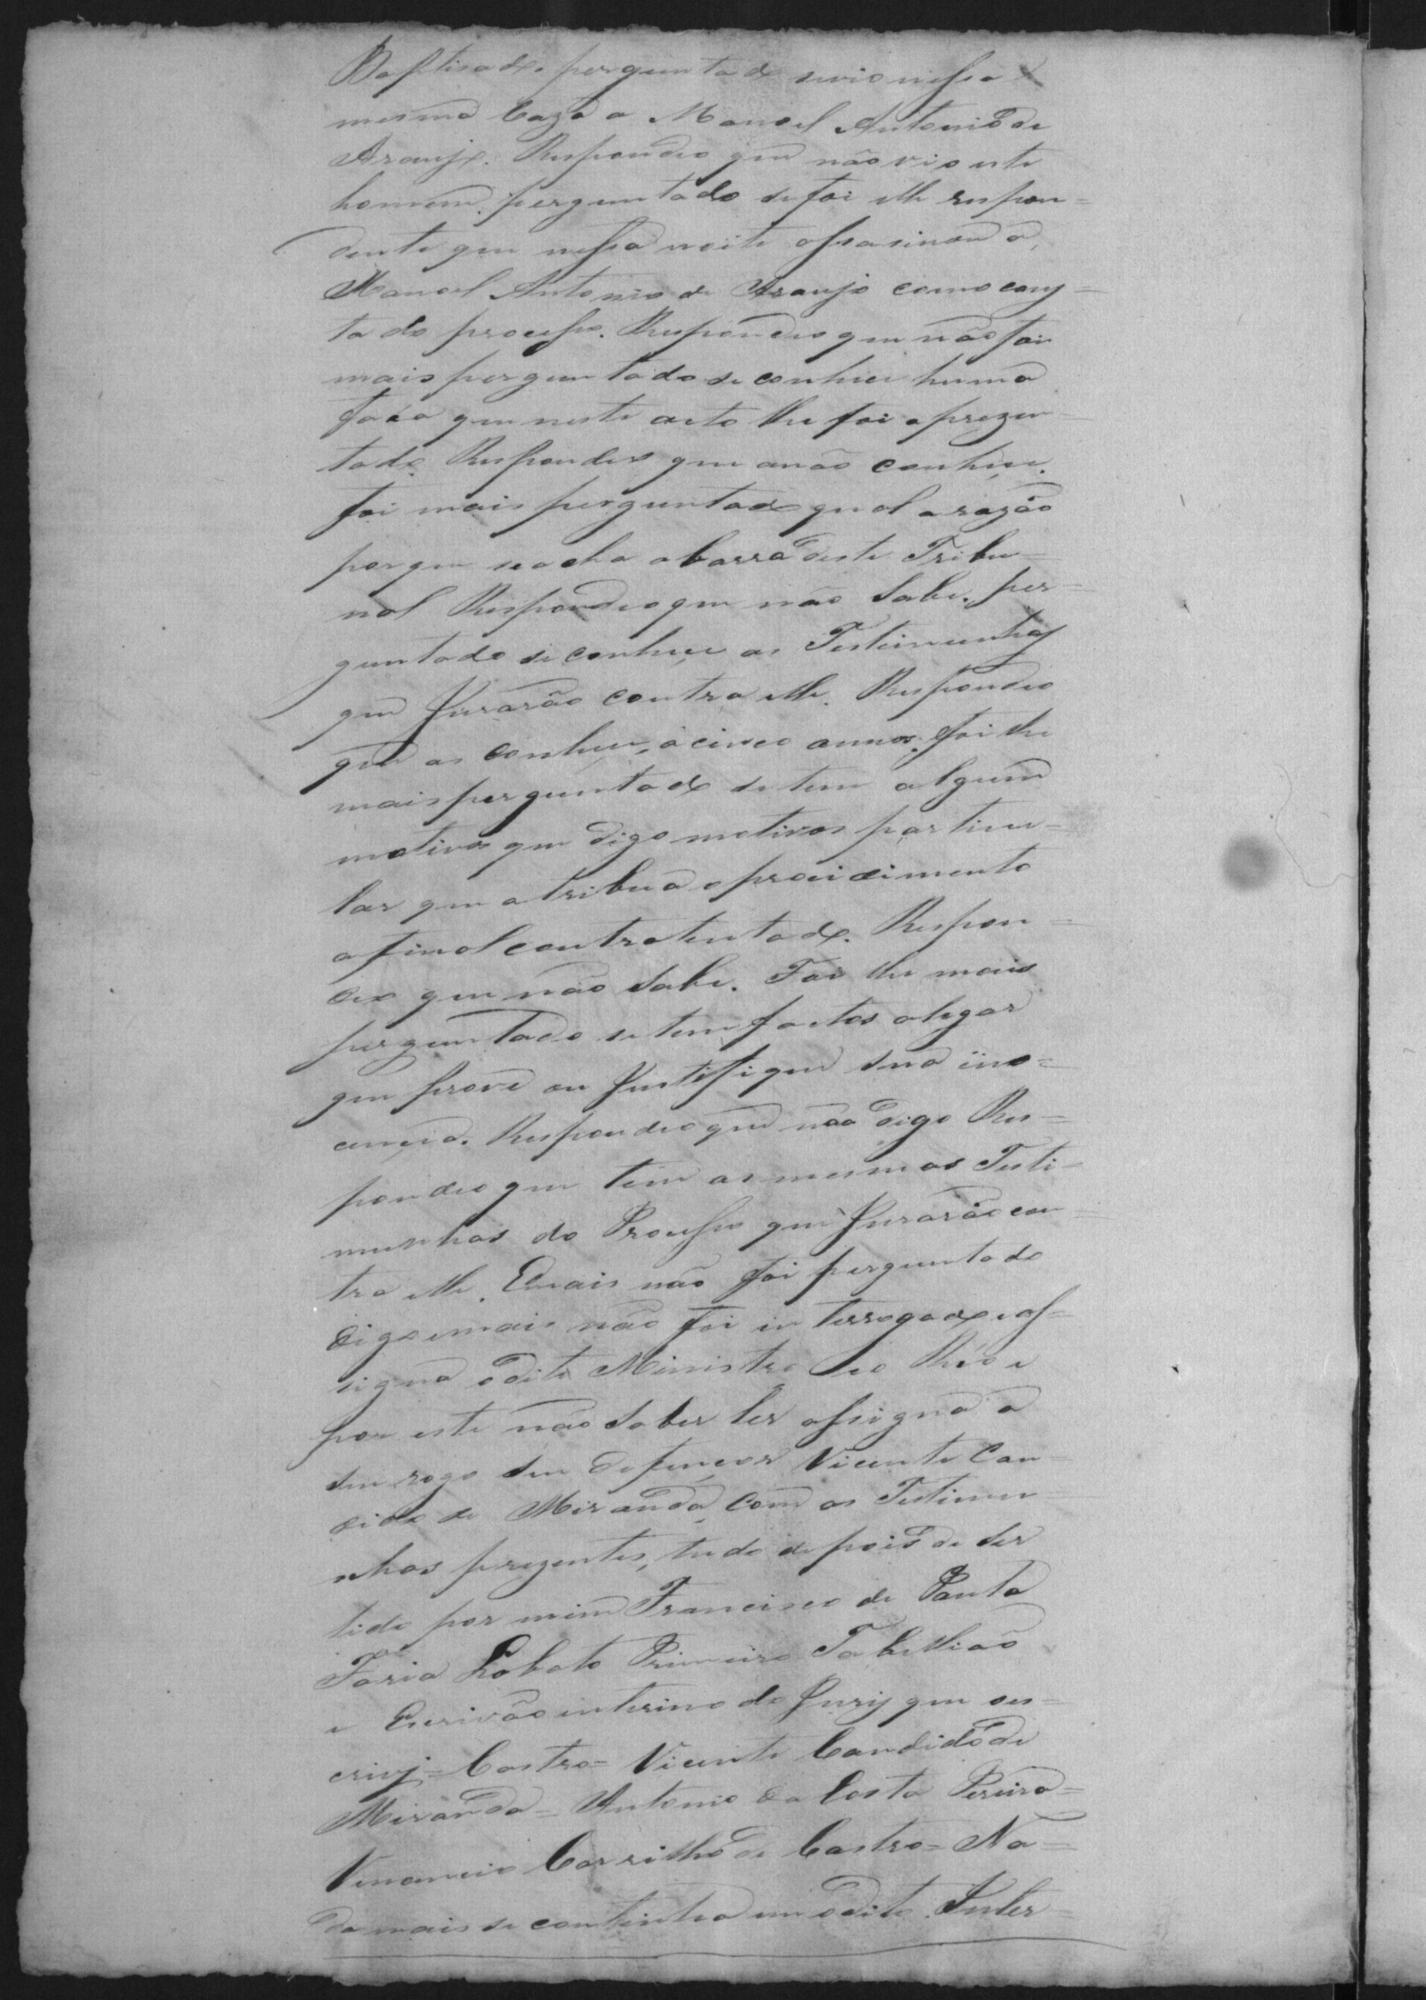 Baptisado. perguntado se vio nessa
mesma Caza a Manoel Antonio de
Araujo. Respondeo que não vio este
homem. perguntado se foi elle respon=
dente que nessa noite assasinou a
Manoel Antonio de Araujo como cons=
ta do processo. Respondeo que não foi
mais perguntado se conhece huma
faca que neste acto lhe foi aprezen=
tada Respondeo que a não conhece.
foi mais perguntado qual a razão
porque se acha a barra deste Tribu=
nal Respondeo que não Sabe. per=
guntado se conhece as Testemunhas
que Jurarão contra elle. Respondeo
que as conhece, á cinco annos. foi lhe
mais perguntado se tem algum
motivo que digo motivos particu=
lar que atribua o procidimento
afinal contratentado. Respon=
deo que não Sabe. Foi lhe mais
perguntado se tem factos alegar
que prove ou Justifique sua ino=
cencia. Respondeo que não digo Res=
pondeo que tem as mesmas Teste=
munhas do Processo que Jurarão con=
tra elle. Emais não foi perguntado
digo emais não foi interrogado eas=
signa o dito Ministro e o Réo e
por este não saber ler assigna a
seu rogo seu defençor Vicente Can=
dido de Miranda, Com as Testemu=
nhas prezentes, tudo depois de ser
lido por mim Francisco de Paula
Faria Lobato Primeiro Tabellião
e Escrivão interino do Jury que es=
crivy = Castro = Vicente Candido de
Miranda = Antonio da Costa Pereira =
Venancio Carrilho de Castro = Na=
da mais se continha em o dito Inter=